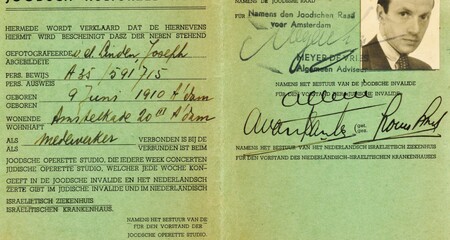 HIERMEDE WORDT VERKLAARD DAT DE HIERNEVENS
HIERMIT WIRD BESCHEINIGT DASZ DER NEBEN STEHEND
GEFOTOGRAFEERDE Joseph
ABGEBILDETE
PERS. BEWIJS A35/591715
PERS. AUSWEIS
GEBOREN 9 Juni 1910 A'dam
GEBOREN
WONENDE Amstelkade 20 A'dam
WOHNHAFT
ALS Medewerker VERBONDEN IS BIJ DE
ALS VERBUNDEN IST BEIM
JOODSCHE OPERETTE STUDIO, DIE IEDERE WEEK CONCERTEN
JÜDISCHE OPERETTE STUDIO, WELCHER JEDE WOCHE KON-
GEEFT IN DE JOODSCHE INVALIDE EN HET NEDERLANDSCH
ZERTE GIBT IM JÜDISCHE INVALIDE UND IM NIEDERLÄNDISCH
ISRAELIETISCH ZIEKENHUIS
ISRAELITISCHEN KRANKENHAUS.
NAMENS HET BESTUUR VAN DE
FÜR DEN VORSTAND DER
JOODSCHE OPERETTE STUDIO.
NAMENS DE JOODSCHE RAAD
FÜR
Namens den Joodschen Raad
voor Amsterdam
MEYER DE VRIES
Algemeen Adviseur
NAMENS HET BESTUUR VAN DE JOODSCHE INVALIDE
FÜR DEN VORSTAND DER JOODSCHE INVALIDE
NAMENS HET BESTUUR VAN HET NEDERLANDSCH ISRAELIETISCH ZIEKENHUIS
FÜR DEN VORSTAND DES NIEDERLÄNDISCH-ISRAELITISCHEN KRANKENHAUSES